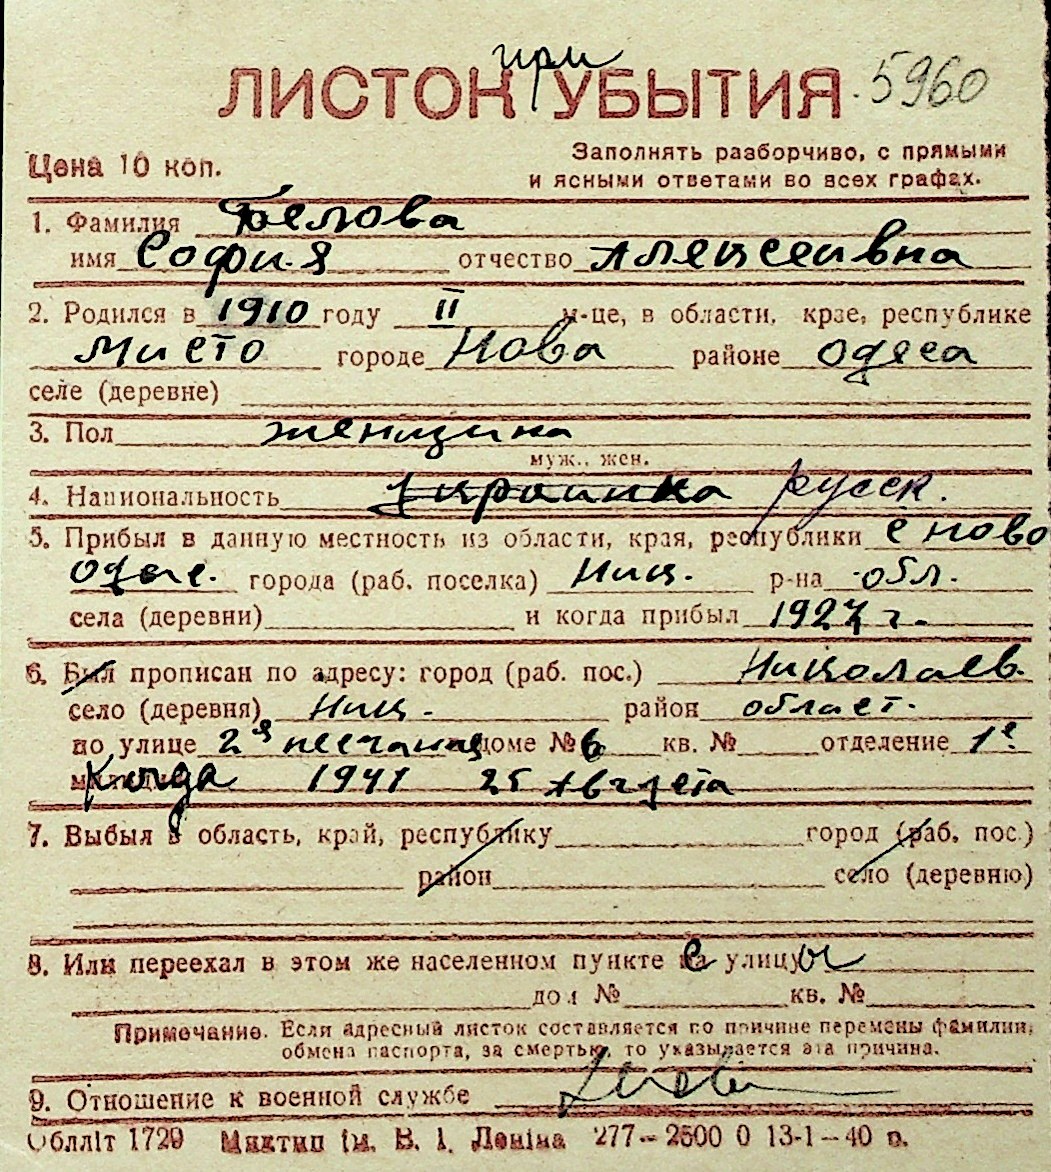 при
ЛИСТОК УБЫТИЯ 5960
Цена 10 коп.
Заполнять разборчиво, с прямыми
и ясными ответами во всех графах.
1. Фамилия Белова
имя София отчество Алексеивна
2. Родился в 1910 году II м-це, в области, крае, республике
Мисто городе Нова районе Одеса
селе (деревне)
3. Пол женщина
муж., жен.
4. Национальность украинка русск.
5. Прибыл в данную местность из области, края, республики с Ново
Одес. города (раб. поселка) Ник. р-на обл.
села (деревни) и когда прибыл 1927 г.
6. Был прописан по адресу: город (раб. пос.) Николаев.
село (деревня) Ник. район област.
по улице 2я песчаная доме № 6 кв. № отделение 1е
Когда 1941 25 Августа
7. Выбыл в область, край, республику город (раб. пос.)
район село (деревню)
8. Или переехал в этом же населенном пункте с улицы
дом № кв. №
Примечание. Если адресный листок составляется по причине перемены фамилии,
обмена паспорта, за смертью, то указывается эта причина.
9. Отношение к военной службе
Облліт 1729 Миктип ім. В. І. Леніна 277—2500 0 13-1—40 р.